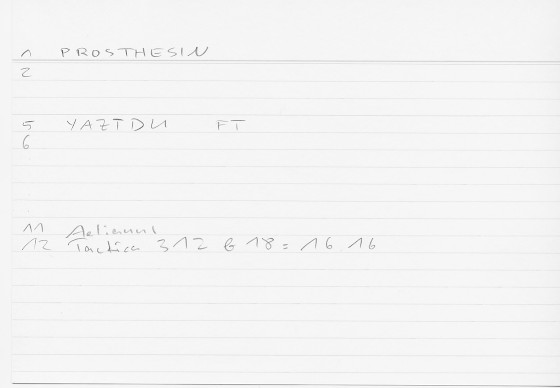 1 PROSTHESIN
2
5 YAZTDU FT
6
11 Aelianus
12 Tactica 312 6 18 = 16 16